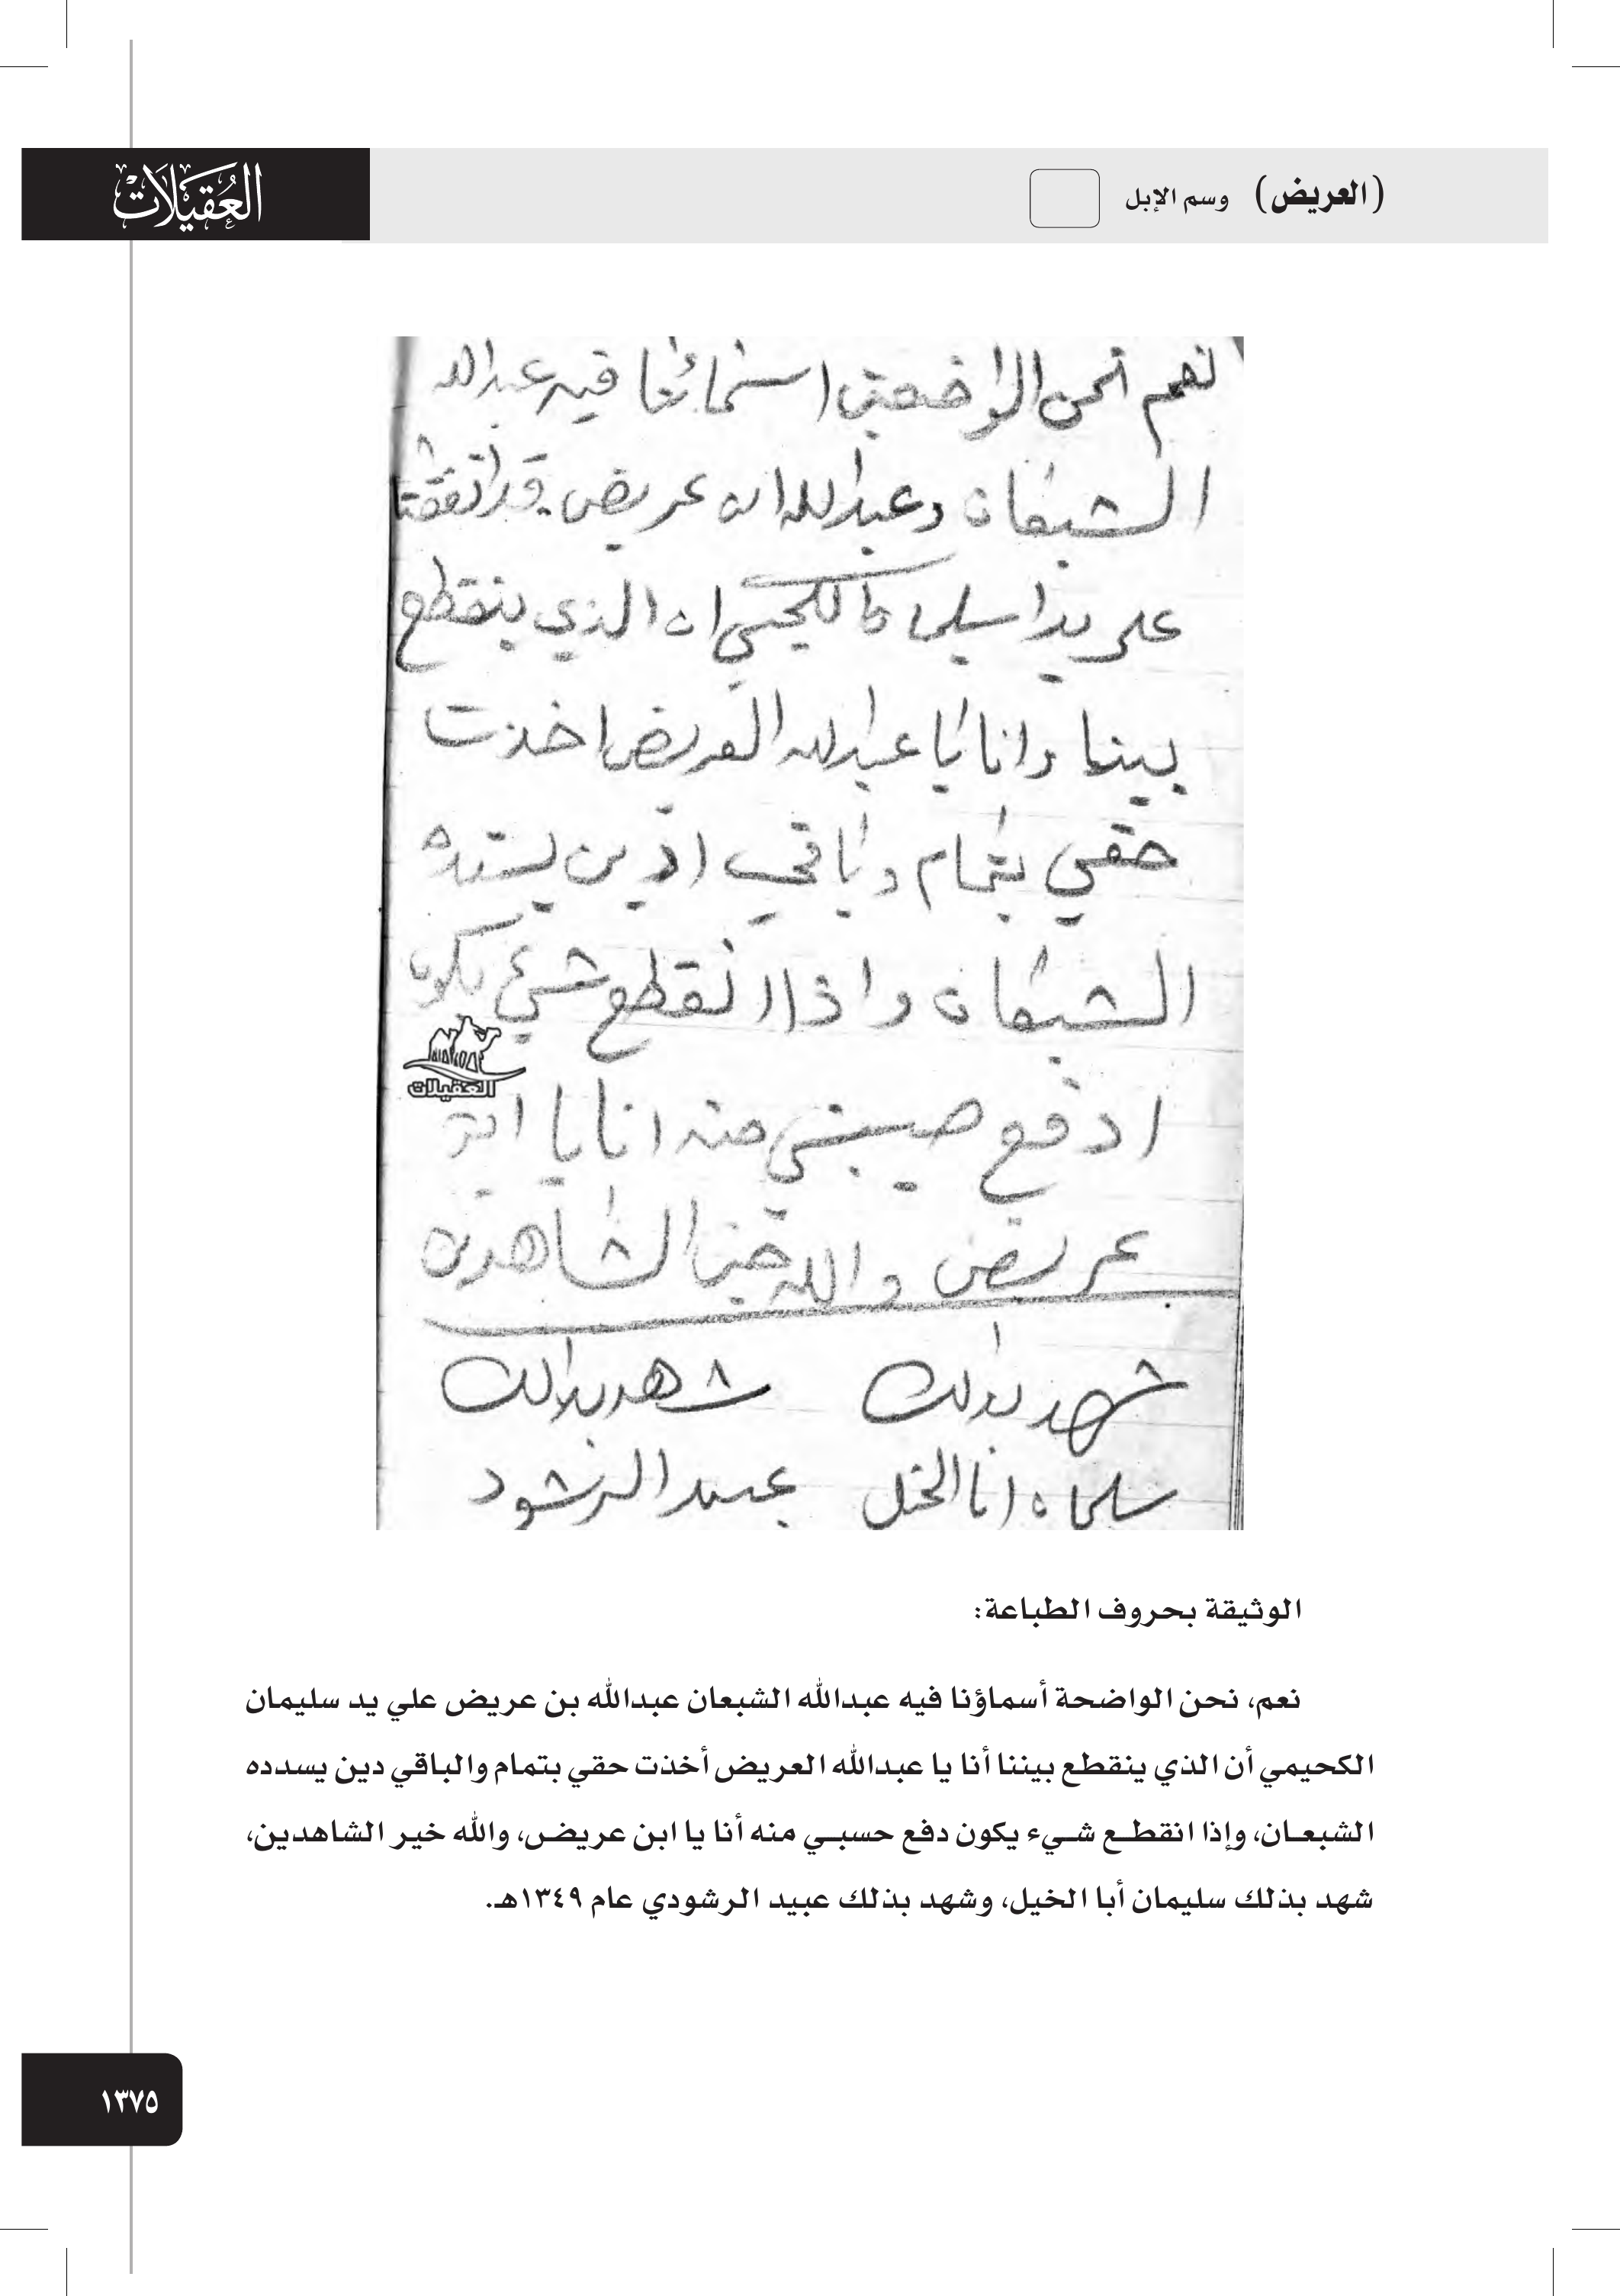 العقيلات
(العريض) وسم الإبل
نعم نحن الواضحتن اسمائنا فيه عبدالله
الشبعان وعبدالله ان عريض قد اتفقنا
على يد اسليمان الكحيمي ان الذي ينقطع
بيننا وانا يا عبدالله العريض اخذت
حقي بتمام وباقي ادين يسدده
الشبعان واذا انقطع شيئ يكون
ادفع حسبتي منه انا يا ابن
عريض والله خير الشاهدين
شهد بذلك شهد بذالك
سليمان ابا الخيل عبيد الرشود
العقيلات
الوثيقة بحروف الطباعة:
نعم، نحن الواضحة أسماؤنا فيه عبدالله الشبعان عبدالله بن عريض علي يد سليمان
الكحيمي أن الذي ينقطع بيننا أنا يا عبدالله العريض أخذت حقي بتمام والباقي دين يسدده
الشبعان، وإذا انقطع شيء يكون دفع حسبي منه أنا يا ابن عريض، والله خير الشاهدين،
شهد بذلك سليمان أبا الخيل، وشهد بذلك عبيد الرشودي عام ١٣٤٩هـ.
١٣٧٥